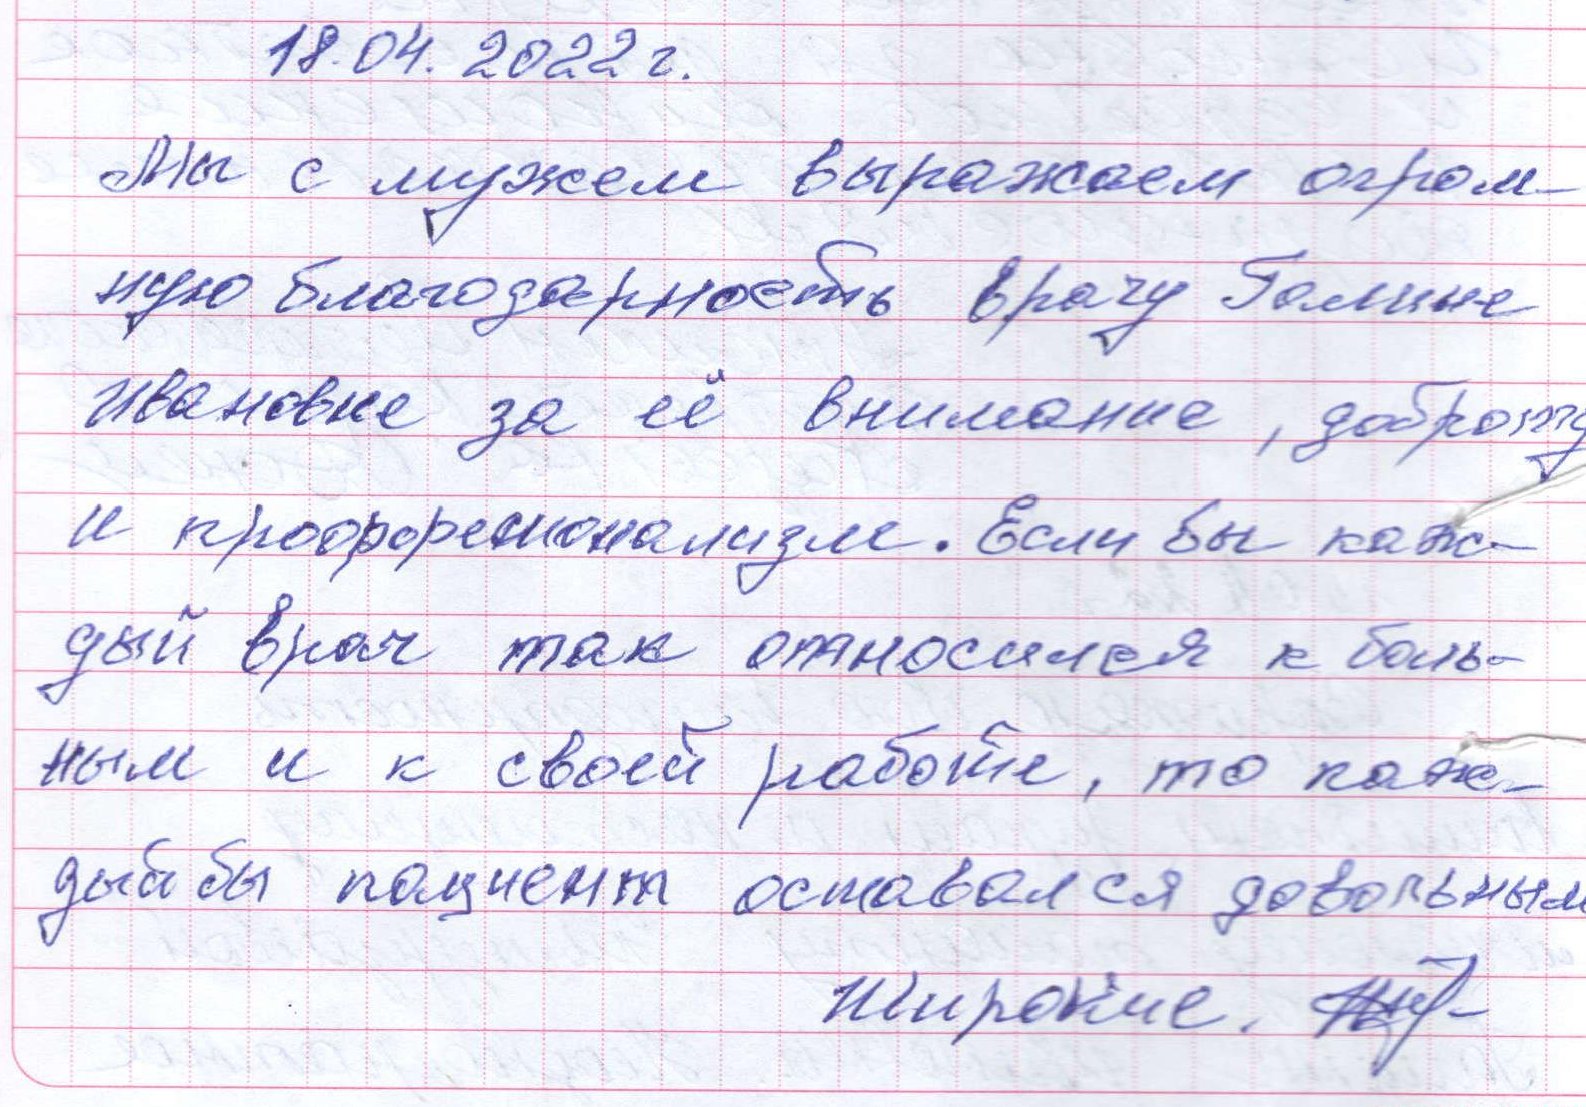 18.04.2022 г.
Мы с мужем выражаем огром-
ную благодарность врачу Галине
Ивановне за её внимание, доброту
и профресионализм. Если бы каж-
дый врач так относился к боль-
ным и к своей работе, то каж-
дый бы пациент оставался довольным